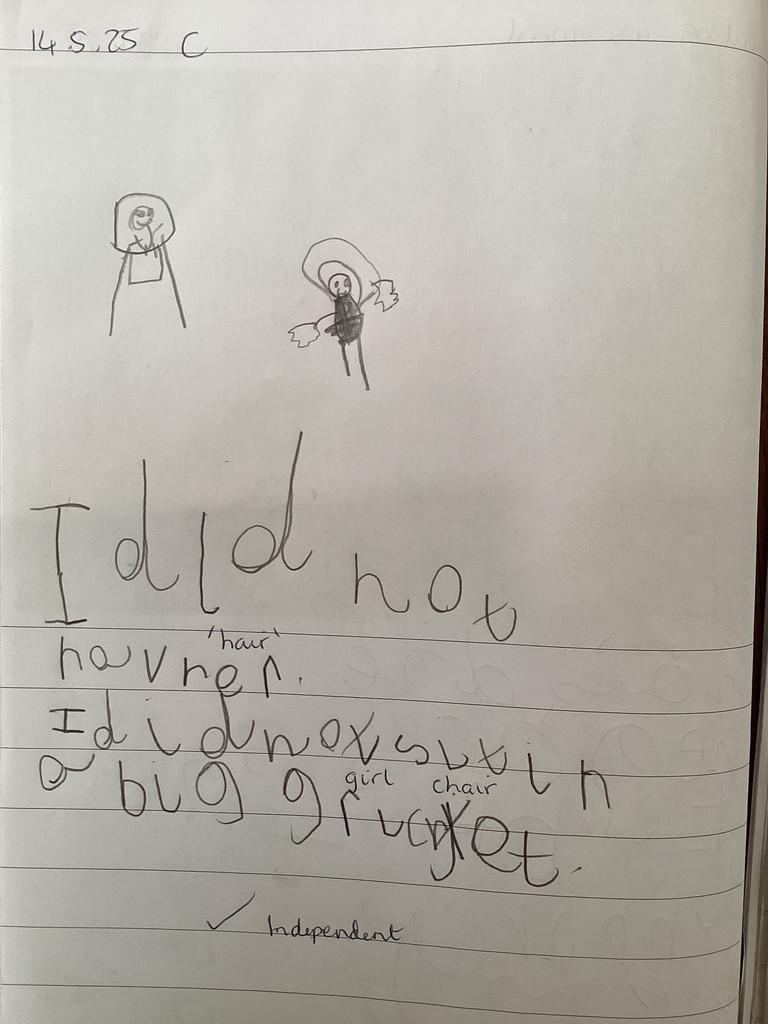 14.5.25 C
I did not
'hair'
hav her.
I did not sit in
a big
girl chair
✓ Independent